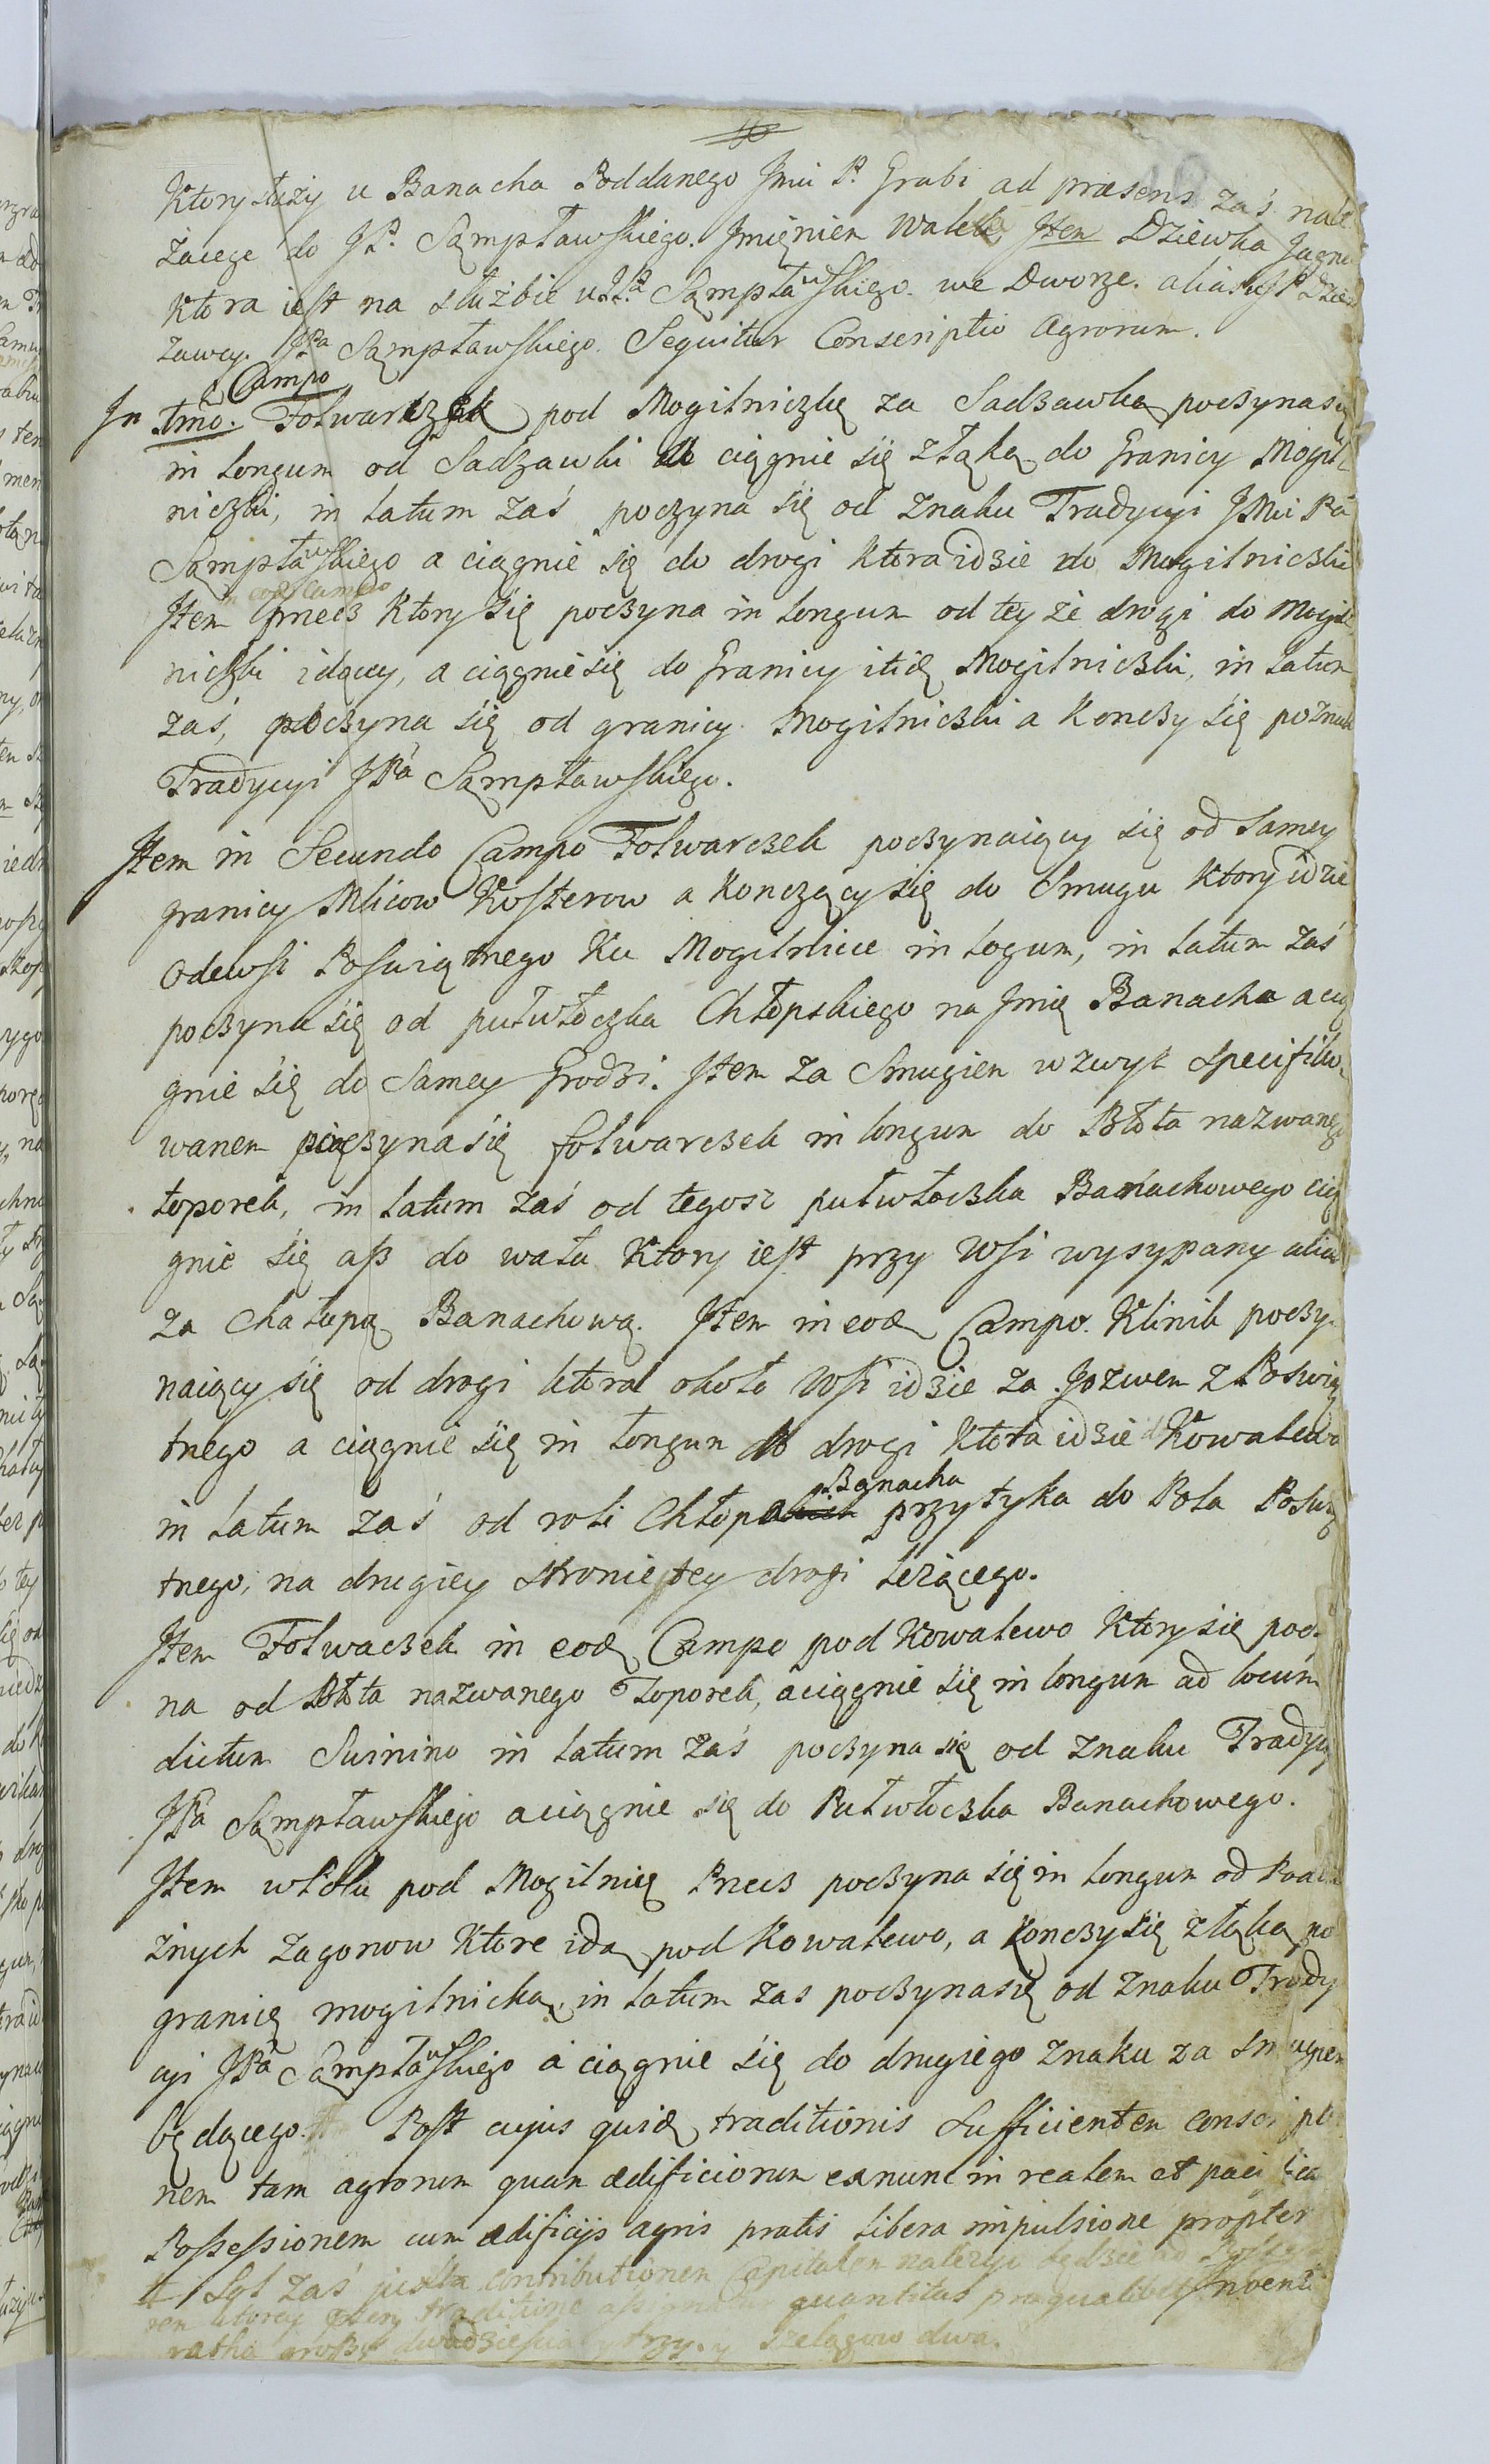 Ktory służy u Banacha Poddanego Jmci P. Grabi ad præsens zaś nale
żącego do JP. Sąmpławskiego. Jmięniem Walek Jtem Dziewka Jagni
Ktora iest na służbie u JPa Sąmpławskiego. we Dworze. alias u JP Dzier
żawcy. JPa Sąmpławskiego. Sequitur Conscriptio Agrorum.
Campo
Jn 1mo. Folwarczek pod Mogilniczkę za Sadzawką poczyna się
in longum od Sadzawki ciągnie się z łąką do Granicy Mogil
niczki, in latum zaś poczyna się od znaku Tradycyi JMci Pa
Sąmpławskiego a ciągnie się do drogi Ktora idzie do Mogilniczki
in eod Campo
Jtem Gnecz Ktory się poczyna in longum od tey że drogi do Mogil
niczki idącey, a ciągnie się do Granicy itię Mogilniczki, in latum
zaś, poczyna się od granicy Mogilniczki a Konczy się po znak
Tradycyi JPa Sąmpławskiego.
Jtem in Secundo Campo Folwarczek poczynaiący się od Samey
granicy Mlicow Kosterow a Konczący się do Smugu Ktory idzie
odewsi Poswiętnego Ku Mogilnice in logum, in latum zaś
poczyna się od pułwłoczka Chłopskiego na Jmię Banacha a cią
gnie się do Samey Grodzi. Jtem za Smugiem wzwysz specifiko
wanem poczyna się folwarczek in longum do Błota nazwanego
toporek, in latum zaś od tegosz pułwłoczka Banachowego cią
gnie się asz do wału Ktory iest przy Wsi wysypany alias
za Chałupą Banachową. Jtem in eod Campo. Klinik poczy
naiący się od drogi ktora około Wsi idzie za Jozwem z Poswię
tnego a ciągnie się in longum do drogi Ktora idzie do Kowalewa
Banacha
in latum zaś od roli Chłop przytyka do Pola Poswię
tnego, na drugiey stronie tey drogi leżącego.
Jtem Folwaczek in eod Campo pod Kowalewo Ktory się poczy
na od Błota nazwanego Toporek, a ciągnie się in longum ad locum
dictum Swinino in latum zaś poczyna się od znaku Tradycyi
JPa Sąmpławskiego a ciągnie się do Pułwłoczka Banachowego.
Jtem w Polu pod Mogilnię Pnecz poczyna się in longum od
żnych zagonow Ktore idą pod Kowalewo, a Konczy się z łąką po
granicę mogilnicką, in latum zas poczyna się od znaku Trady
cyi JPa Sąmpławskiego a ciągnie się do drugiego znaku za smugiem
będącego. # Post cujus quid traditionis Sufficientem conscriptio
nem tam agrorum quam ædificiorum ex nunc in realem et pacifica
Possessionem cum ædificijs agris pratis libera impulsione propter
# / Sol zaś juxta contributionem Capitalem należyć będzie ad
traditione quantitas pro qualibet
ratha groszy dwadziescia y trzy. y szelągow dwa.